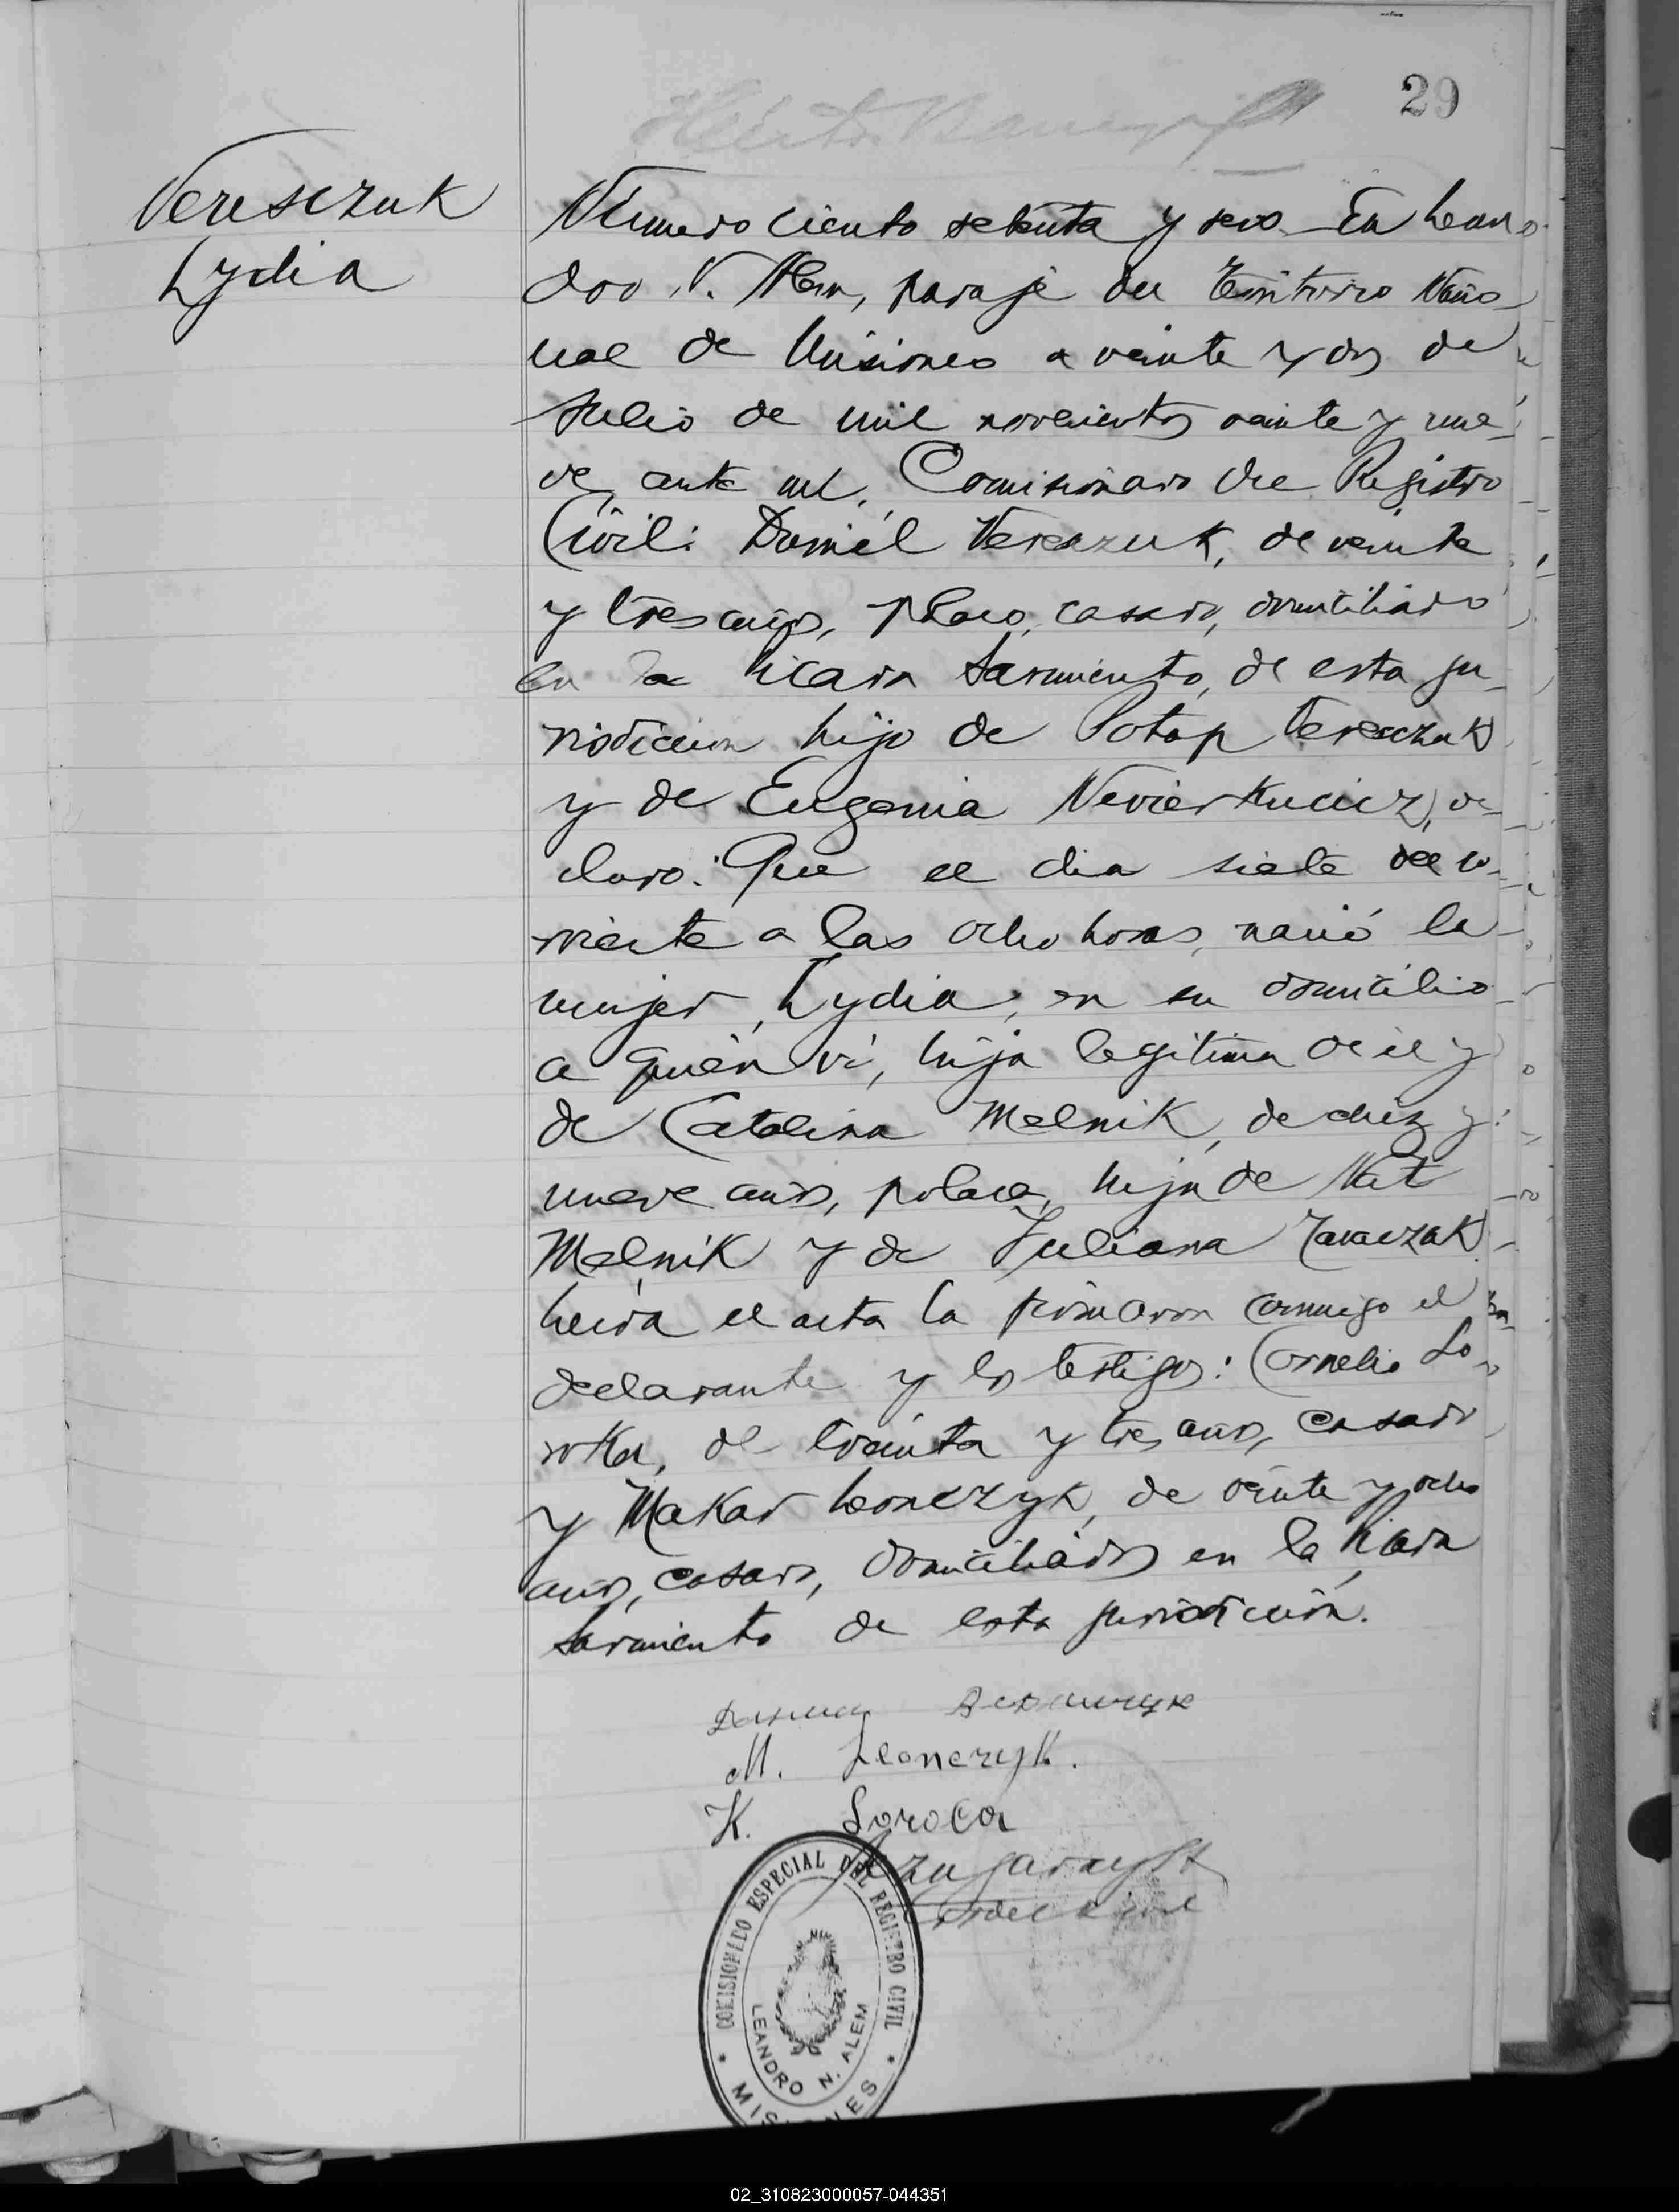 29
Veresczuk
Lydia
Número ciento setenta y seis. En Lean
dro N. Alem, paraje del territorio Nacio
nal de Misiones a veinte y dos de
Julio de mil novecientos veinte y nue
ve, ante mi, Comisionado del Registro
Civil: Daniel Veresczuk, de veinte
y tres años, polaco, casado, domiciliado
en la Picada Sarmiento, de esta ju
risdiccion hijo de Potap Veresczuk
y de Eugenia, de
claró: Que el dia siete del co
rriente a las ocho horas, nació la
mujer, Lydia, en su domicilio
a quién vi, hija legitima de él y
de Catalina Melnik, de diez y
nueve años, polaca, hija de
Melnik y de Juliana
Leida el acta la firmaron conmigo el
declarante y los testigos: Cornelio So
roka, de treinta y tres años, casado
y Makar Leonczyk, de veinte y ocho
años, casado, domiciliados en la Picada
Sarmiento de esta jurisdicción.
M. Leonczyk.
K. Soroca
COMISIONADO ESPECIAL DEL REGISTRO CIVIL
LEANDRO N. ALEM
* MISIONES *
02_310823000057-044351